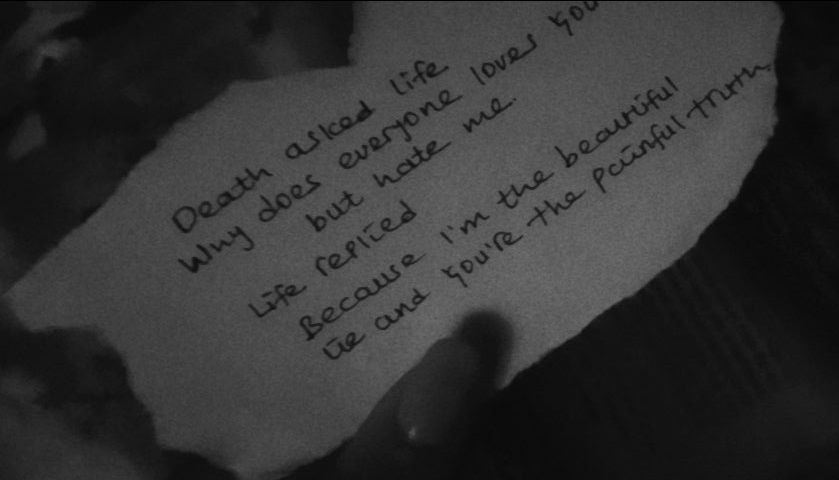 Death asked life
Why does everyone loves you
but hate me.
Life replied
Because I'm the beautiful
lie and you're the painful truth